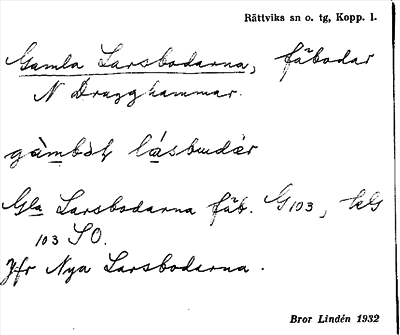 Rättviks sn o. tg, Kopp. l.
Gamla Larsbodarna, fäbodar
N Dragghammar.
lásbudär
Gla Larsbodarna fäb. G 103,
103 SO.
Jfr Nya Larsbodarna.
Bror Lindén 1932